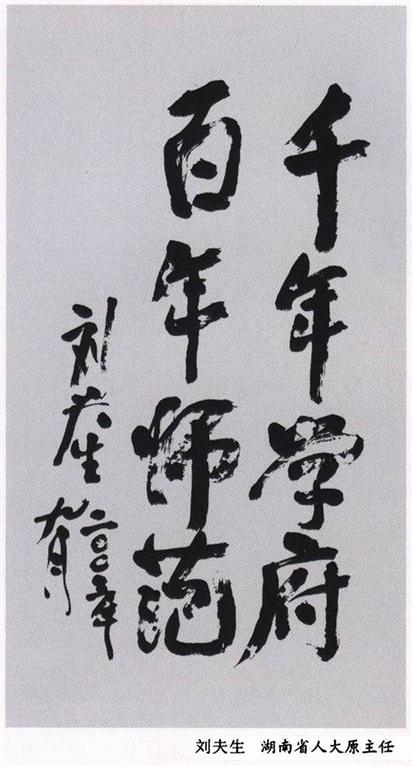 千年学府
百年师范
刘夫生
九月
刘夫生 湖南省人大原主任